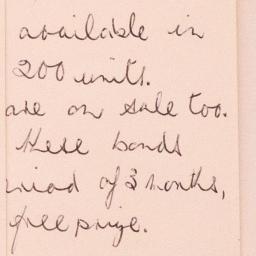 available in
200 units.
are on sale too.
these bonds
of 3 months,
free prize.